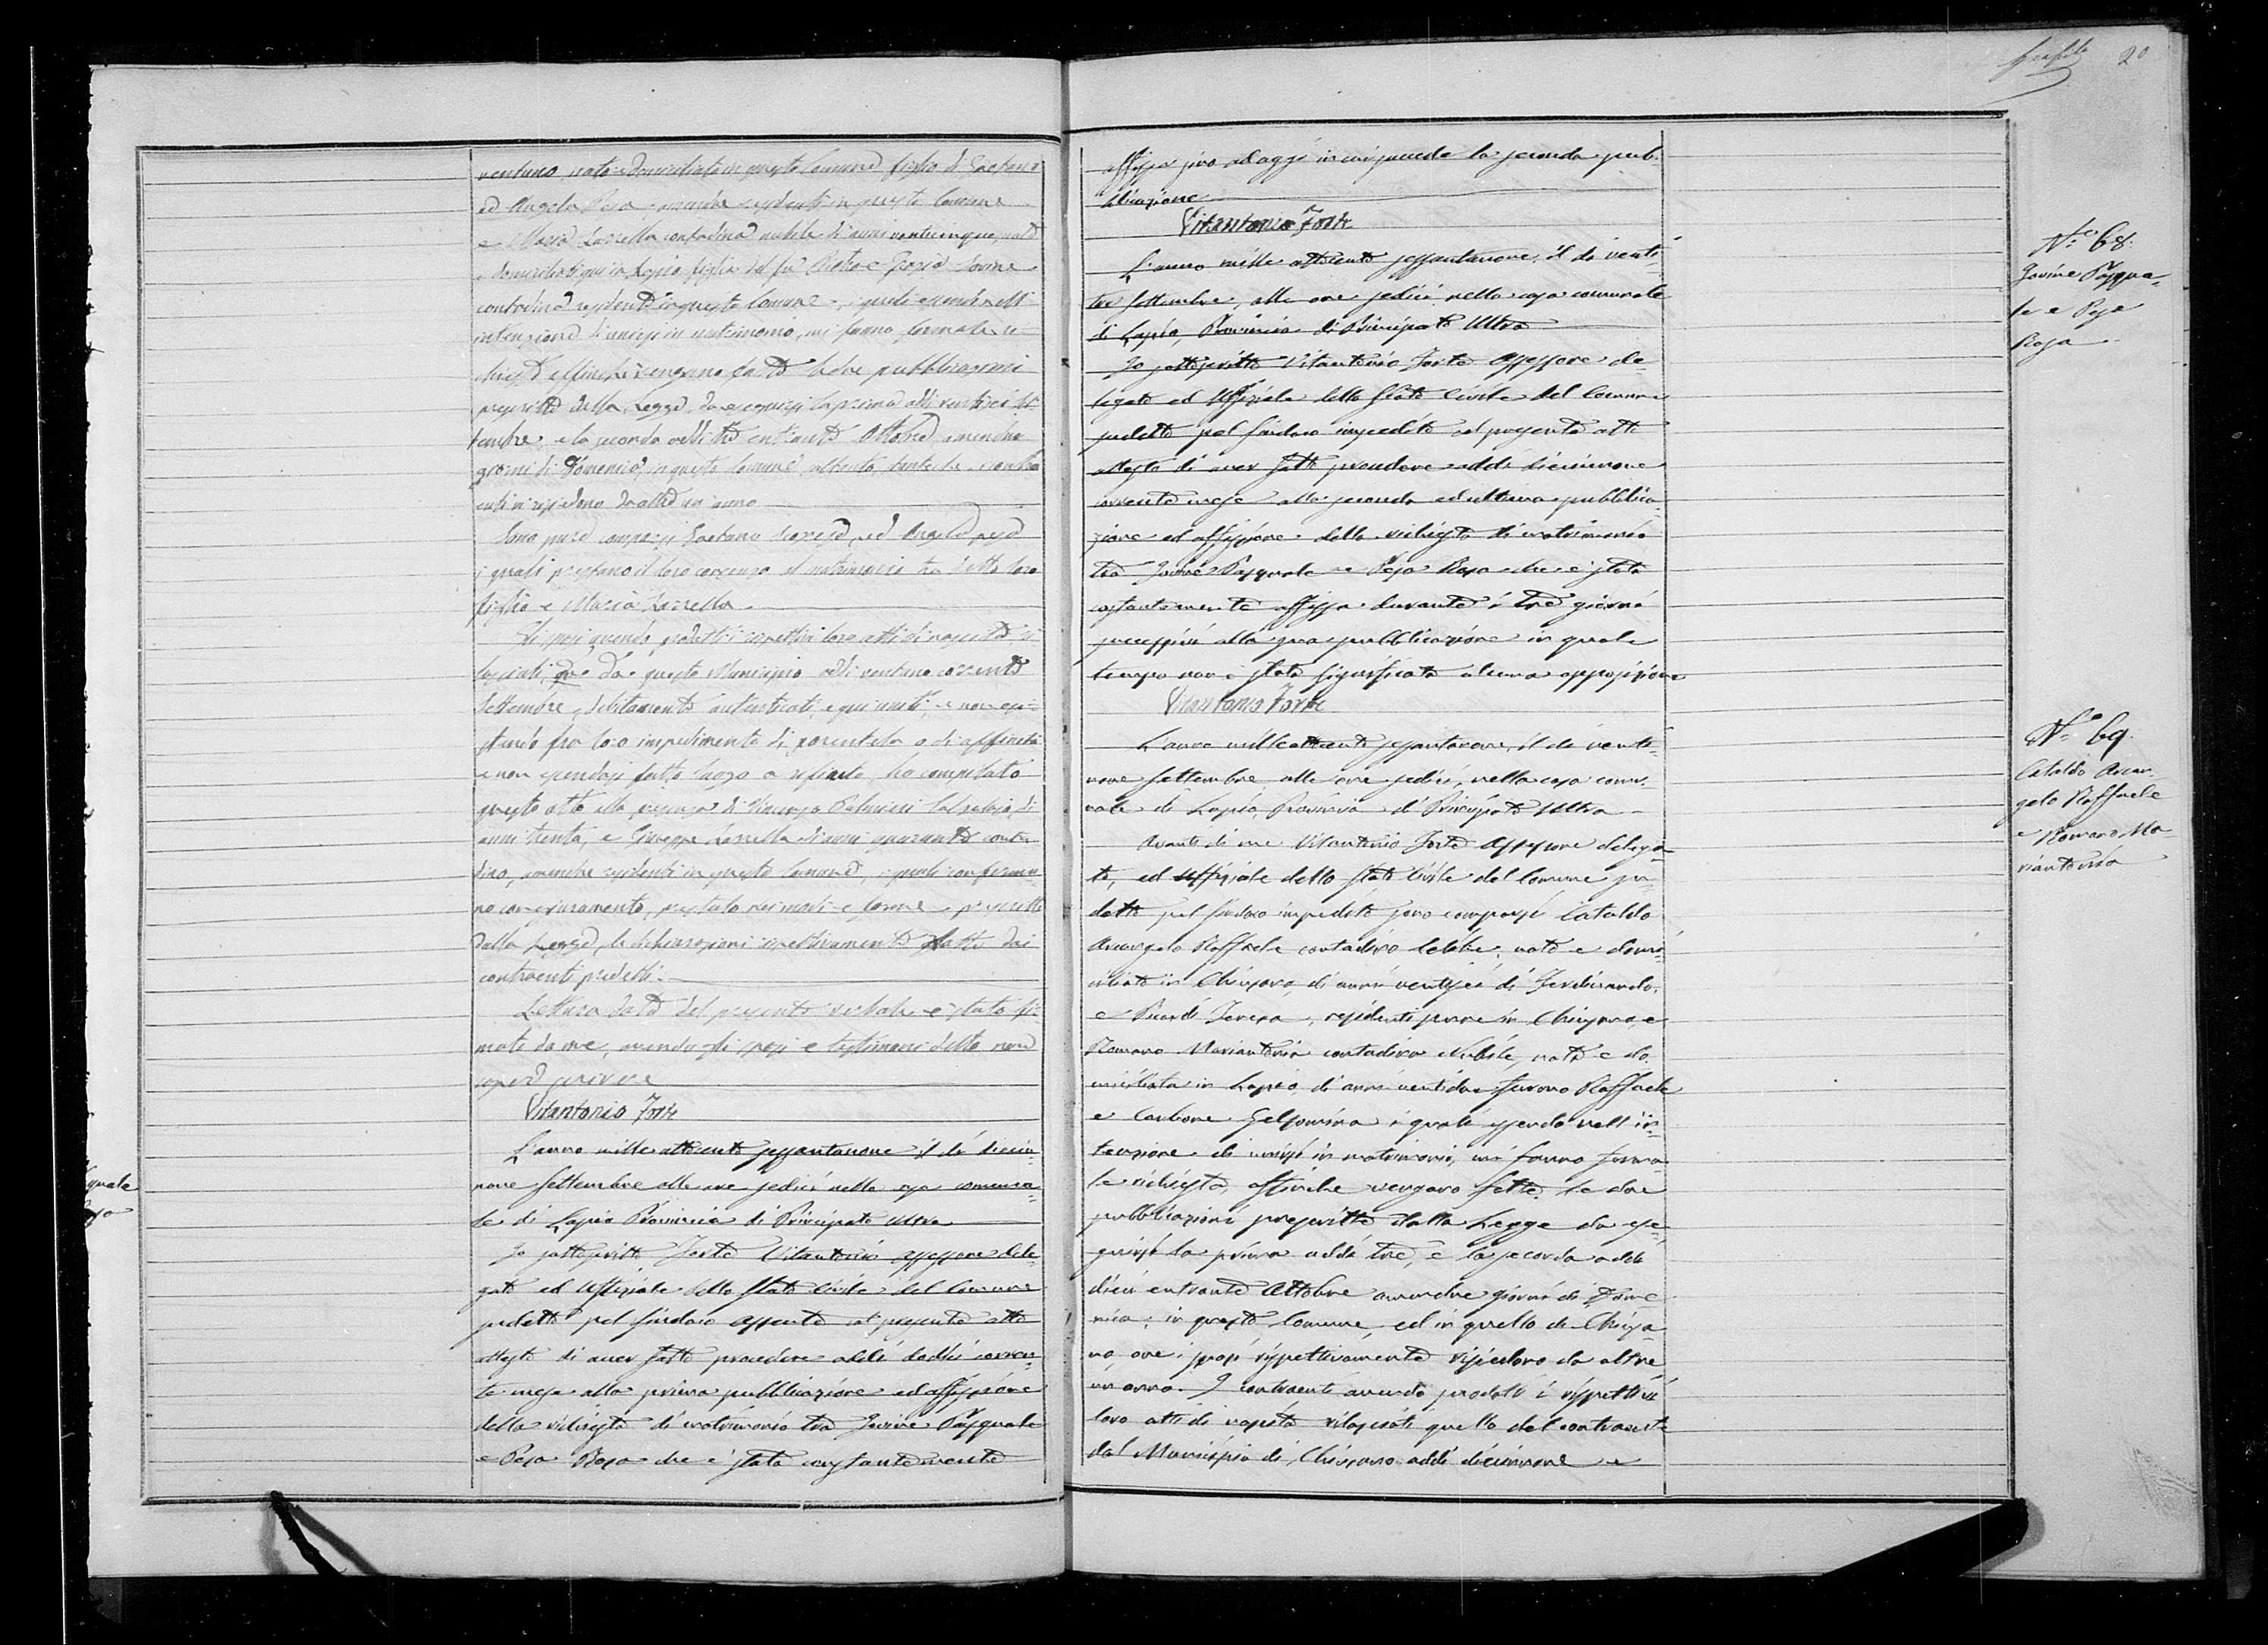 ventuno, nato e domiciliato in questo Comune figlio di Gaetano
ed Angela Pesa amendue residenti in questo Comune
e Maria Lazzella contadina nubile di anni venticinque, nata
e domiciliata qui in Lapio figlia del fu Pietro e Grazia Iovine
contadina residente in questo Comune, i quali essendo nell'
intenzione di unirsi in matrimonio, mi fanno formale ri-
chiesta affinché vengano fatte le due pubblicazioni
prescritte dalla Legge da eseguirsi la prima addì ventisei Set-
tembre e la seconda addì tre entrante Ottobre amendue
giorni di Domenica, in questo Comune, attento tanto che i contra
enti vi risiedono da oltre un anno
Sono pure comparsi Gaetano ed Angela Pesa
i quali prestano il loro consenso al matrimonio tra detto loro
figlio e Maria Lazzella
Gli sposi avendo prodotti i rispettivi loro atti di nascita ri-
lasciati da questo Municipio addì ventuno corrente
Settembre, debitamente autenticati, e qui uniti, e non esi-
stendo fra loro impedimento di parentela o di affinità
e non essendosi fatto luogo a rifiuto, ho compilato
questo atto alla presenza di Vincenzo Palmieri calzolajo, di
anni trenta, e Giuseppe Lazzella di anni quaranta conta-
dino, amendue residenti in questo Comune, i quali conferma-
no con giuramento, prestato nei modi e forme prescritte
dalla Legge, le dichiarazioni rispettivamente fatte dai
contraenti predetti
Lettura data del presente verbale è stato fir-
mato da me, avendo gli sposi e testimoni detto non
sapere scrivere
Vitantonio Forte
L'anno mille ottocento sessantanove il dì dician-
nove Settembre alle ore sedici nella casa comuna-
le di Lapio Provincia di Principato Ultra
Io sottoscritto Forte Vitantonio assessore dele
gato ed Uffiziale dello Stato Civile del Comune
sudetto pel Sindaco assente al presente atto
attesto di aver fatto procedere addì dodici corren-
te mese alla prima pubblicazione ed affissione
della richiesta di matrimonio tra Iovine Pasquale
e Pesa Rosa che è stata costantemente
squale
affissa sino ad oggi in cui procede la seconda pub-
blicazione
Vitantonio Forte
L'anno mille ottocento sessantanove, il dì venti-
tre Settembre, alle ore sedici, nella casa comunale
di Lapio, Provincia di Principato Ultra
Io sottoscritto Vitantonio Forte Assessore de-
legato ed Uffiziale dello Stato Civile del Comune
sudetto pel Sindaco impedito al presente atto
attesto di aver fatto procedere addì diciannove
corrente mese alla seconda ed ultima pubblica-
zione ed affissione della richiesta di matrimonio
tra Iovine Pasquale e Pesa Rosa che è stata
costantemente affissa durante i tre giorni
successivi alla sua pubblicazione in quale
tempo non è stata significata alcuna opposizione
Vitantonio Forte
L'anno mille ottocento sessantanove, il dì venti-
nove Settembre alle ore sedici, nella casa comu-
nale di Lapio, Provincia di Principato Ultra
Avanti di me Vitantonio Forte Assessore delega-
to, ed Uffiziale dello Stato Civile del Comune su-
detto pel Sindaco impedito sono comparsi Cataldo
Arcangelo Raffaele contadino celibe, nato e domi-
ciliato in Chiusano, di anni ventisei di Ferdinando,
e Teresa, residenti pure in Chiusano, e
Romano Mariantonia contadina nubile, nata e do-
miciliata in Lapio, di anni ventidue furono Raffaele
e Carbone Gelsomina i quali essendo nell'in-
tenzione di unirsi in matrimonio, mi fanno forma-
le richiesta, affinché vengano fatte le due
pubblicazioni prescritte dalla Legge da ese-
guirsi la prima addì tre, e la seconda addì
dieci entrante Ottobre amendue giorni di Dome-
nica; in questo Comune, ed in quello di Chiusa-
no, ove i sposi rispettivamente risiedono da oltre
un anno. I contraenti avendo prodotti i rispettivi
loro atti di nascita rilasciati quello del contraente
dal Municipio di Chiusano addì diciannove e
20
N.° 68.
Iovine Pasqua-
le e Pesa
Rosa
N.° 69.
Cataldo Arcan-
gelo Raffaele
e Romano Ma-
riantonia